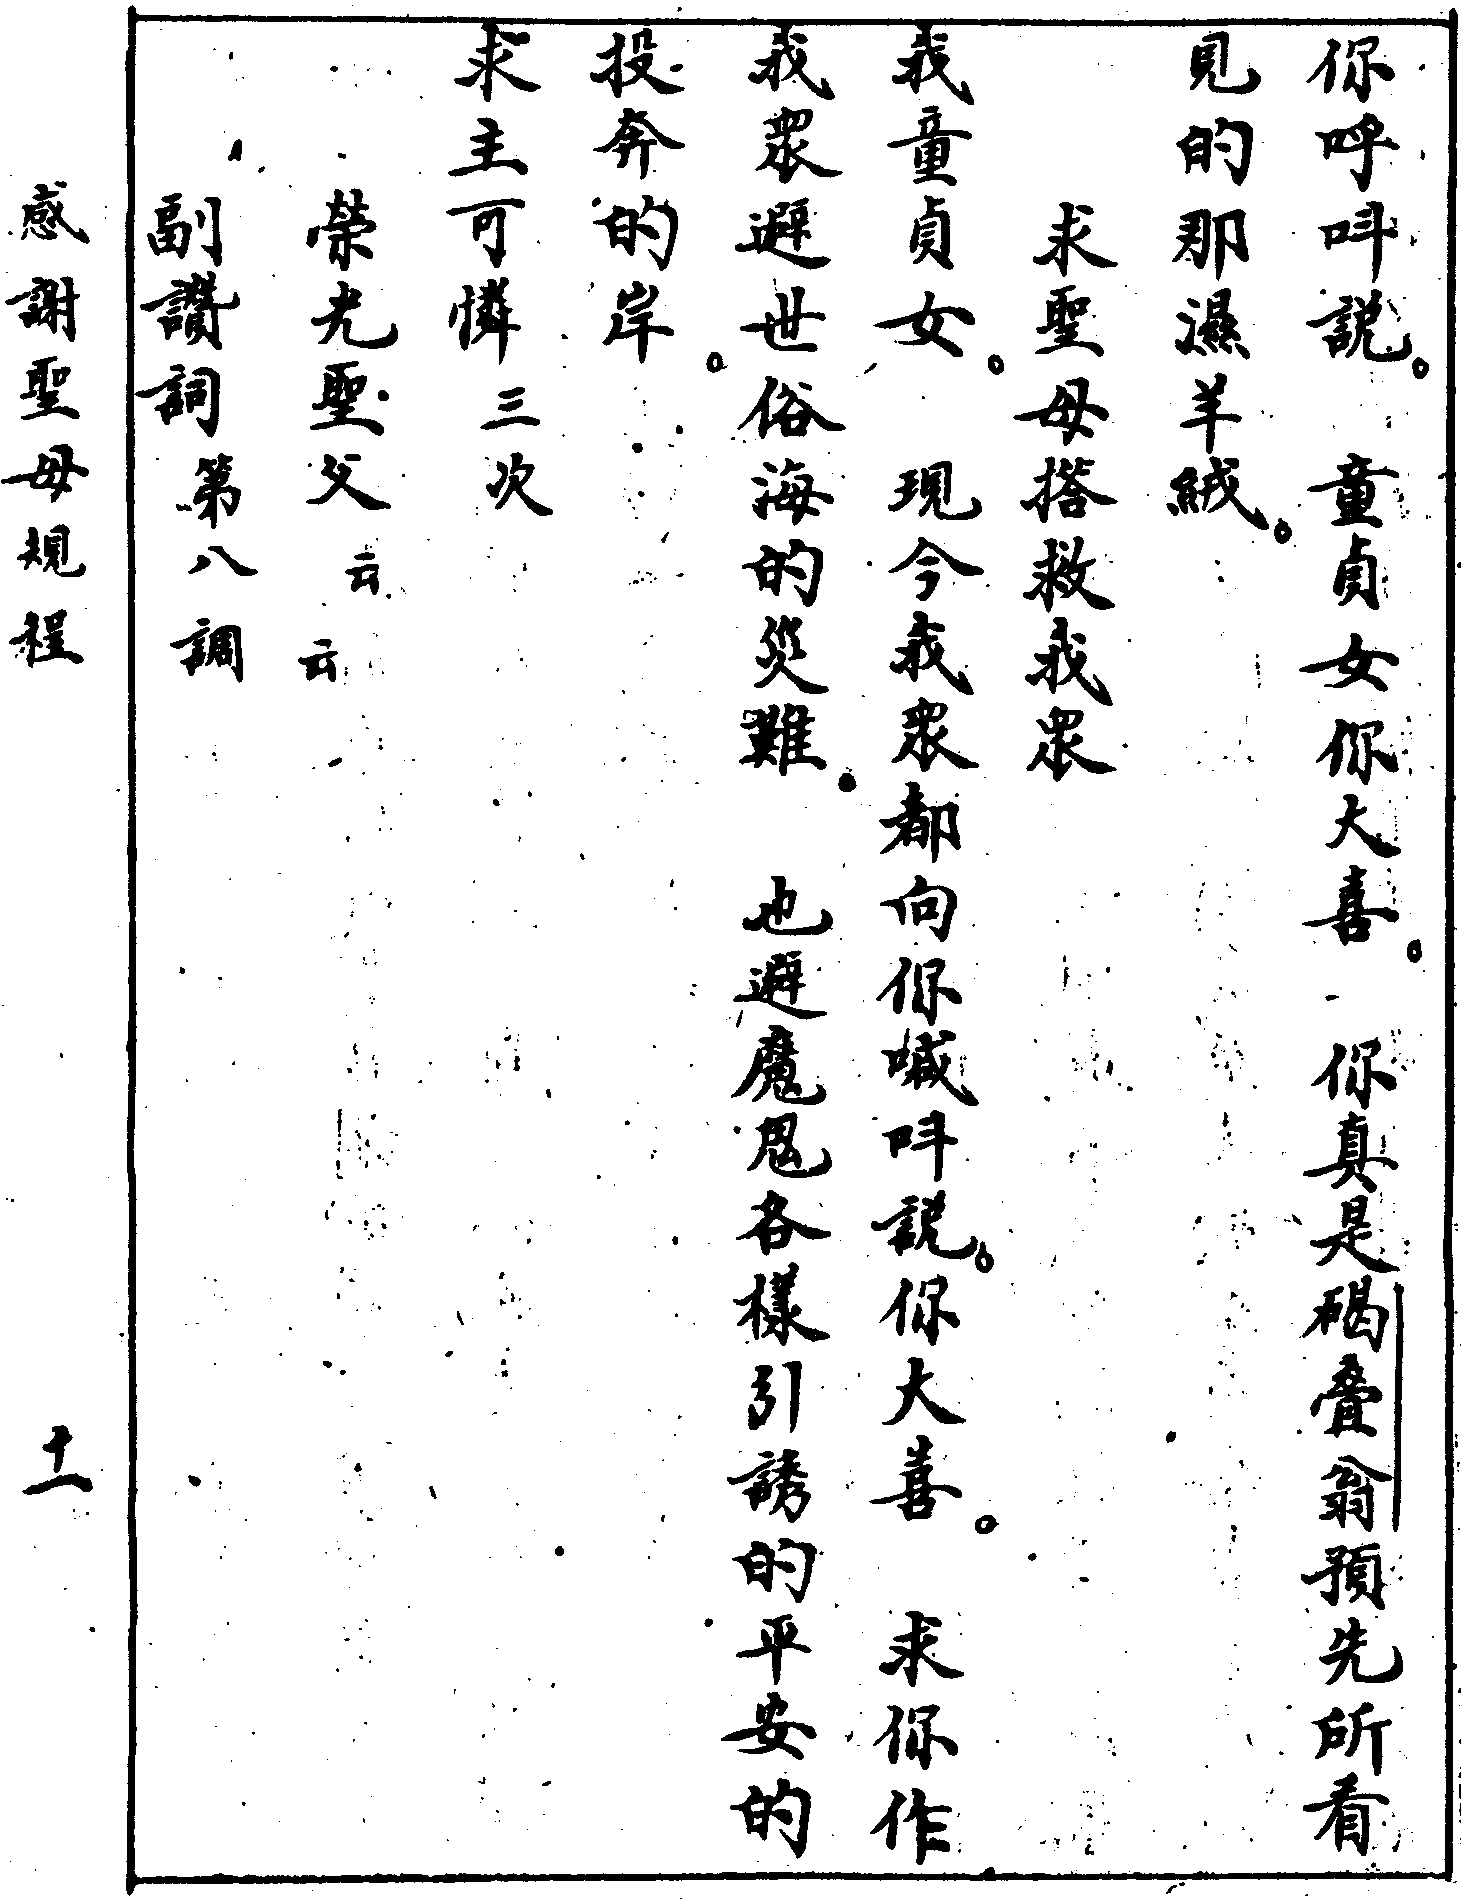 你呼呌説。童貞女你大喜。你真是碣叠翁預先所看
見的那濕羊絨。
求聖母搭救我衆
我童貞女。現今我衆都向你喊呌説。你大喜。求你作
我衆避世俗海的災難。也避魔鬼各樣引誘的平安的
投奔的岸。
求主可憐三次
榮光聖父云云
副讚詞第八調
感謝聖母規程
十一